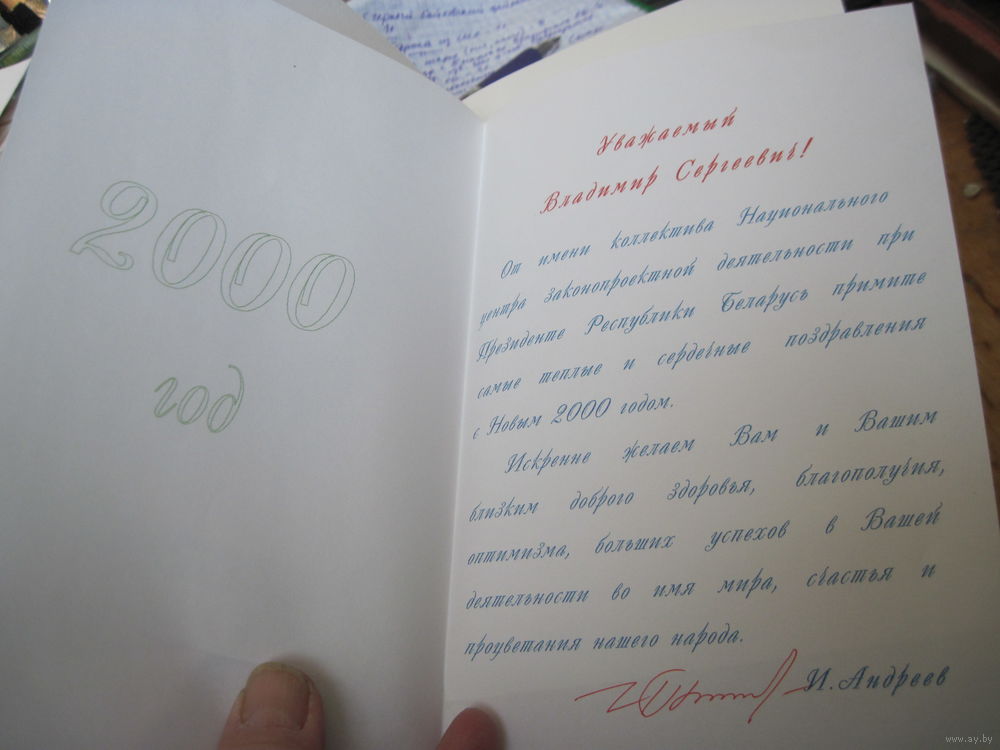 2000
год
Уважаемый
Владимир Сергеевич!
От имени коллектива Национального
центра законопроектной деятельности при
Президенте Республики Беларусь примите
самые теплые и сердечные поздравления
с Новым 2000 годом.
Искренне желаем Вам и Вашим
близким доброго здоровья, благополучия,
оптимизма, больших успехов в Вашей
деятельности во имя мира, счастья и
процветания нашего народа.
И. Андреев
www.ay.by